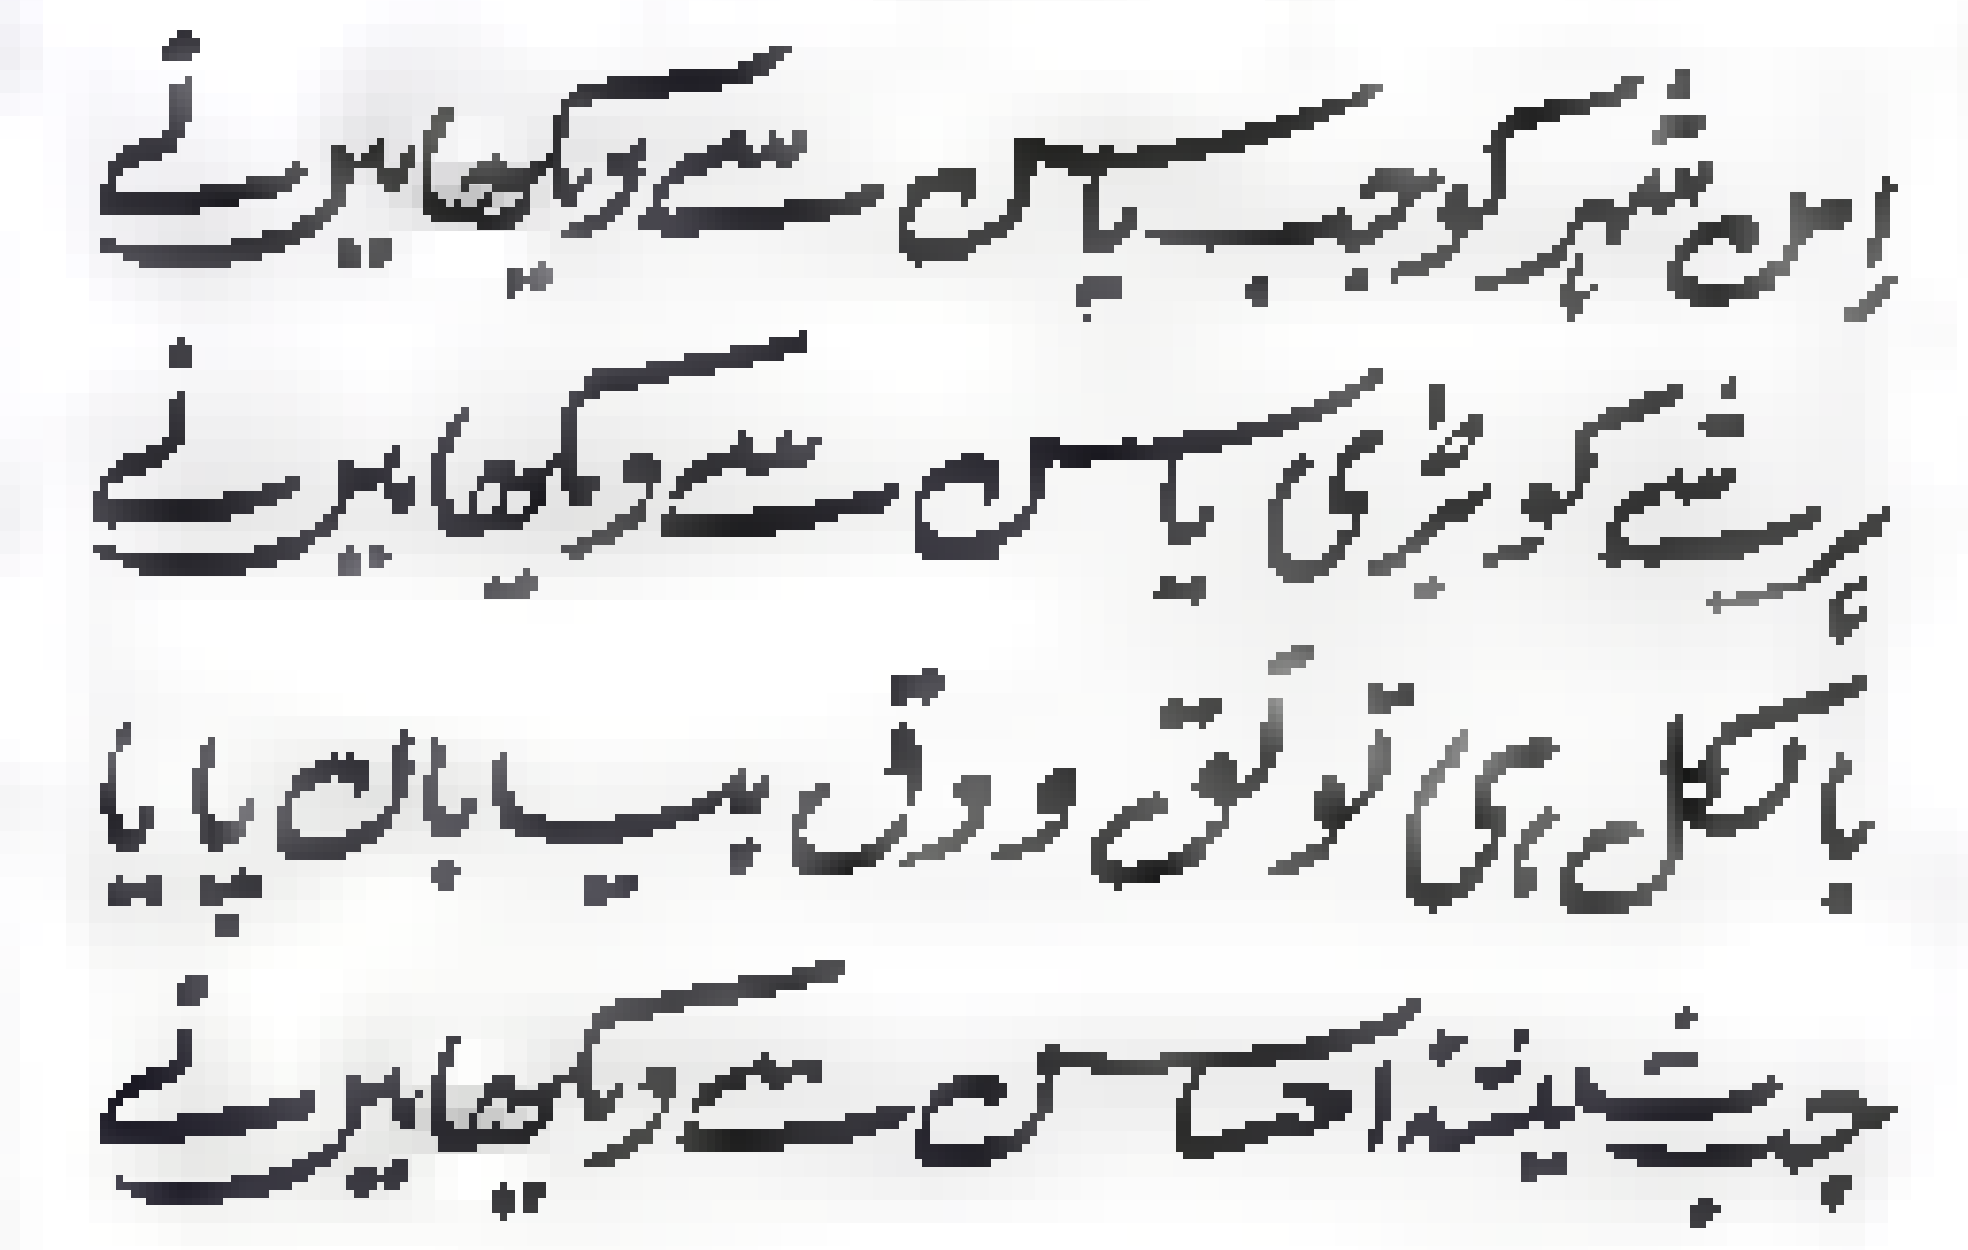 اِس شہر کو جب پاس سے دیکھا میں نے
ہر شے کو بڑی یاس سے دیکھا میں نے
بالکل ہی تو لَق و دق بیاباں پایا
جب شیشۂ احساس سے دیکھا میں نے